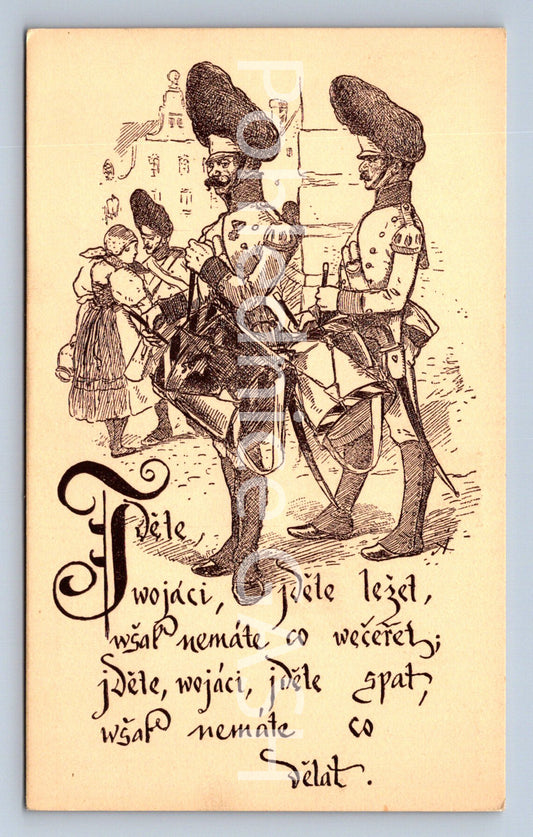 Jděte,
wojáci, jděte ležet,
wšak nemáte co wečeřet;
jděte, wojáci, jděte spat,
wšak nemáte co
dělat.
pohlednice CASH